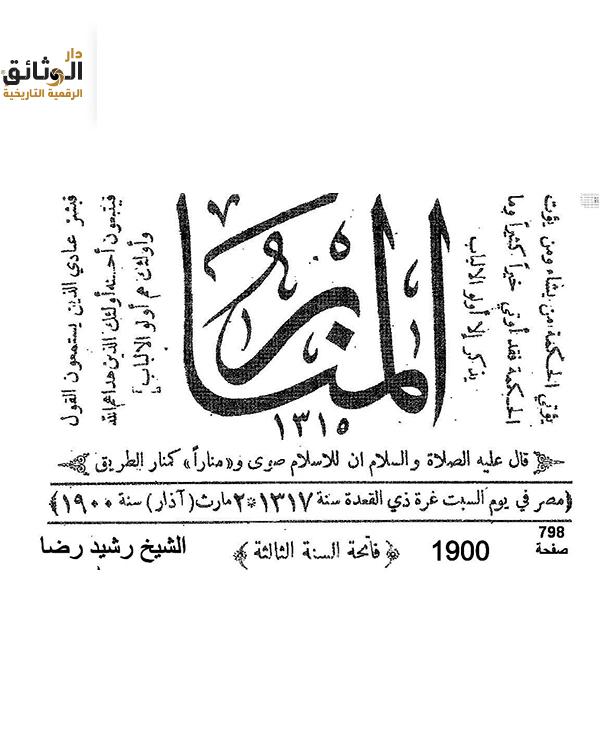 دار
الوثائق
الرقمية التاريخية
يؤتي الحكمة من يشاء ومن يؤت
الحكمة فقد أوتي خيراً كثيراً وما
يذكر إلا أولو الالباب
المنار
١٣١٥
فبشر عبادي الذين يستمعون القول
فيتبعون أحسنه أولئك الذين هداهم الله
وأولئك هم أولو الالباب
قال عليه الصلاة والسلام ان للاسلام صوى و«مناراً» كمنار الطريق
(مصر في يوم السبت غرة ذي القعدة سنة ١٣١٧ * ٢ مارث (آذار) سنة ١٩٠٠)
798
صفحة
1900
﴿ فاتحة السنة الثالثة ﴾
الشيخ رشيد رضا